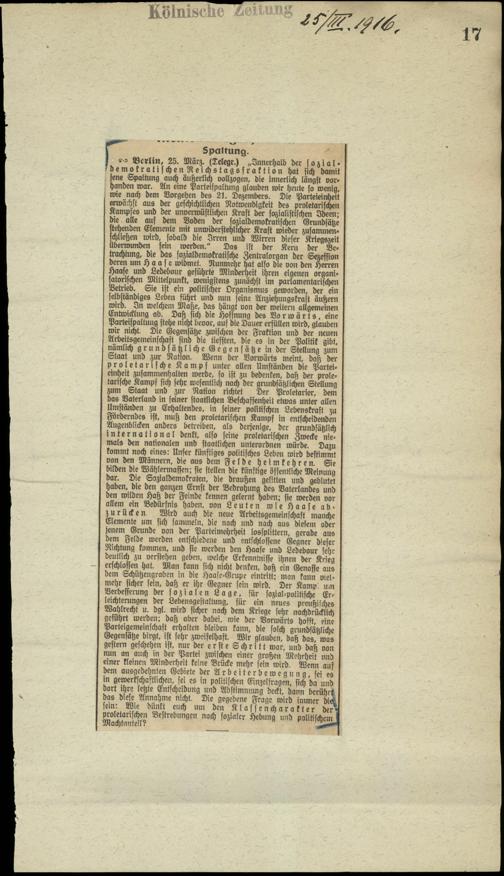 Kölnische Zeitung
25/III. 1916.
17
Spaltung.
Berlin, 25. März. (Telegr.) „Innerhalb der sozial-
demokratischen Reichstagsfraktion hat sich damit
jene Spaltung auch äußerlich vollzogen, die innerlich längst vor-
handen war. An eine Parteispaltung glauben wir heute so wenig,
wie nach dem Vorgehen des 21. Dezembers. Die Parteieinheit
erwächst aus der geschichtlichen Notwendigkeit des proletarischen
Kampfes und der unverwüstlichen Kraft der sozialistischen Ideen;
die alle auf dem Boden der sozialdemokratischen Grundsätze
stehenden Elemente mit unwiderstehlicher Kraft wieder zusammen-
schließen wird, sobald die Irren und Wirren dieser Kriegszeit
überwunden sein werden.“ Das ist der Kern der Be-
trachtung, die das sozialdemokratische Zentralorgan der Sezession
deren um Haase widmet. Nunmehr hat also die von den Herren
Haase und Ledebour geführte Minderheit ihren eigenen organi-
satorischen Mittelpunkt, wenigstens zunächst im parlamentarischen
Betrieb. Sie ist ein politischer Organismus geworden, der ein
selbständiges Leben führt und nun seine Anziehungskraft äußern
wird. In welchem Maße, das hängt von der weitern allgemeinen
Entwicklung ab. Daß sich die Hoffnung des Vorwärts, eine
Parteispaltung stehe nicht bevor, auf die Dauer erfüllen wird, glauben
wir nicht. Die Gegensätze zwischen der Fraktion und der neuen
Arbeitsgemeinschaft sind die tiefsten, die es in der Politik gibt,
nämlich grundsätzliche Gegensätze in der Stellung zum
Staat und zur Nation. Wenn der Vorwärts meint, daß der
proletarische Kampf unter allen Umständen die Partei-
einheit zusammenhalten werde, so ist zu bedenken, daß der prole-
tarische Kampf sich sehr wesentlich nach der grundsätzlichen Stellung
zum Staat und zur Nation richtet. Der Proletarier, dem
das Vaterland in seiner staatlichen Beschaffenheit etwas unter allen
Umständen zu Erhaltendes, in seiner politischen Lebenskraft zu
Förderndes ist, muß den proletarischen Kampf in entscheidenden
Augenblicken anders betreiben, als derjenige, der grundsätzlich
international denkt, also seine proletarischen Zwecke nie-
mals den nationalen und staatlichen unterordnen würde. Dazu
kommt noch eines: Unser künftiges politisches Leben wird bestimmt
von den Männern, die aus dem Felde heimkehren. Sie
bilden die Wählermassen; sie stellen die künftige öffentliche Meinung
dar. Die Sozialdemokraten, die draußen gelitten und geblutet
haben, die den ganzen Ernst der Bedrohung des Vaterlandes und
den wilden Haß der Feinde kennen gelernt haben; sie werden vor
allem ein Bedürfnis haben, von Leuten wie Haase ab-
zurücken. Wird auch die neue Arbeitsgemeinschaft manche
Elemente um sich sammeln, die nach und nach aus diesem oder
jenem Grunde von der Parteimehrheit lossplittern, gerade aus
dem Felde werden entschiedene und entschlossene Gegner dieser
Richtung kommen, und sie werden den Haase und Ledebour sehr
deutlich zu verstehen geben, welche Erkenntnisse ihnen der Krieg
erschlossen hat. Man kann sich nicht denken, daß ein Genosse aus
dem Schützengraben in die Haase-Grupe eintritt; man kann viel-
mehr sicher sein, daß er ihr Gegner sein wird. Der Kampf um
Verbesserung der sozialen Lage, für sozial-politische Er-
leichterungen der Lebensgestaltung, für ein neues preußisches
Wahlrecht u. dgl. wird sicher nach dem Kriege sehr nachdrücklich
geführt werden; daß aber dabei, wie der Vorwärts hofft, eine
Parteigemeinschaft erhalten bleiben kann, die solch grundsätzliche
Gegensätze birgt, ist sehr zweifelhaft. Wir glauben, daß das, was
gestern geschehen ist, nur der erste Schritt war, und daß von
nun an auch in der Partei zwischen einer großen Mehrheit und
einer kleinen Minderheit keine Brücke mehr sein wird. Wenn auf
dem ausgedehnten Gebiete der Arbeiterbewegung, sei es
in gewerkschaftlichen, sei es in politischen Einzelfragen, sich da und
dort ihre letzte Entscheidung und Abstimmung deckt, dann berührt
das diese Annahme nicht. Die gegebene Frage wird immer die
sein: Wie dünkt euch um den Klassencharakter der
proletarischen Bestrebungen nach sozialer Hebung und politischem
Machtanteil?